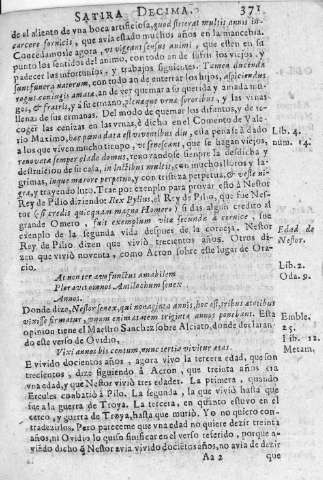 SATIRA DECIMA. 371
de el aliento de vna boca artificiosa, quod steterat multis annis in
carcere fornicis, que avia estado muchos años en la mancebia.
Concedamosle agora, vt vigeant sensus animi, que esten en su
punto los sentidos del animo, con todo an de sufrir los viejos, y
padecer las infortunios, y trabajos siguientes. Tamen ducenda
sunt funera natorum, con todo an de enterrar los hijos, aspiciendus
rogus coniugis amatæ, an de ver quemar a su querida y amada
gos, & fratris, y a su ermano, plenaque vrnæ sororibus, y las vrnas
llenas de sus ermanas. Del modo de quemar los difuntos, y de
coger las cenizas en las vrnas, è dicho en el Comento de Vale-
rio Maximo, hæc pœna data est viventibus diu, esta pena es dada
a los que viven mucho tiempo, vt senescant, que se hagan viejos,
renovata semper clade domus, renovandose siempre la desdicha y
destruicion de su casa, in luctibus multis, con muchos lloros y la-
grimas, inque mœrore perpetuo, y con tristeza perpetua, & veste ni-
gra, y trayendo luto. Trae por exemplo para provar esto à Nestor
Rey de Pilio diziendo: Rex Pylius, el Rey de Pilio, que fue Nes-
tor (si credis quicquam magno Homero) si das algun credito al
grande Omero, fuit exemplum vitæ secundæ à cornice, fue
exemplo de la segunda vida despues de la corneja. Nestor
Rey de Pilo dizen que viviò, trecientos años. Otros di-
zen que viviò noventa, como Acron sobre este lugar de Ora-
cio.
At non ter ævo functus amabilem
Ploravit omnes Antilochum senex
Annos.
Donde dize, Nestor senex, qui nonaginta annis, hoc est, tribus ætatibus
vixisse firmatur, vnam enim ætatem triginta annos ponebant. Esta
opinion tiene el Maestro Sanchez sobre Alciato, donde declaran-
do este verso de Ovidio,
Vixi annos bis centum, nunc tertia vivitur ætas.
E vivido docientos años, agora vivo la tercera edad, que son
trecientos, dize siguiendo à Acron, que treinta años era
vna edad, y que Nestor viviò tres edades. La primera, quando
Ercules conbatiò à Pilo. La segunda, la que viviò hasta que
fue a la guerra de Troya. La tercera, en quinto estuvo en el
cerco, y guerra de Troya, hasta que muriò. Yo no quiero con-
tradezirlos. Pero pareceme que vna edad no quiere dezir treinta
años, ni Ovidio lo quiso sinificar en el verso referido, porque a-
viendo dicho q̃ Nestor avia vivido docietos años, no avia de dezir
Aa 2 que
Lib. 4.
num. 14.
Edad de
Nestor.
Lib. 2.
Oda. 9.
Emble.
25.
Lib. 12.
Metam.